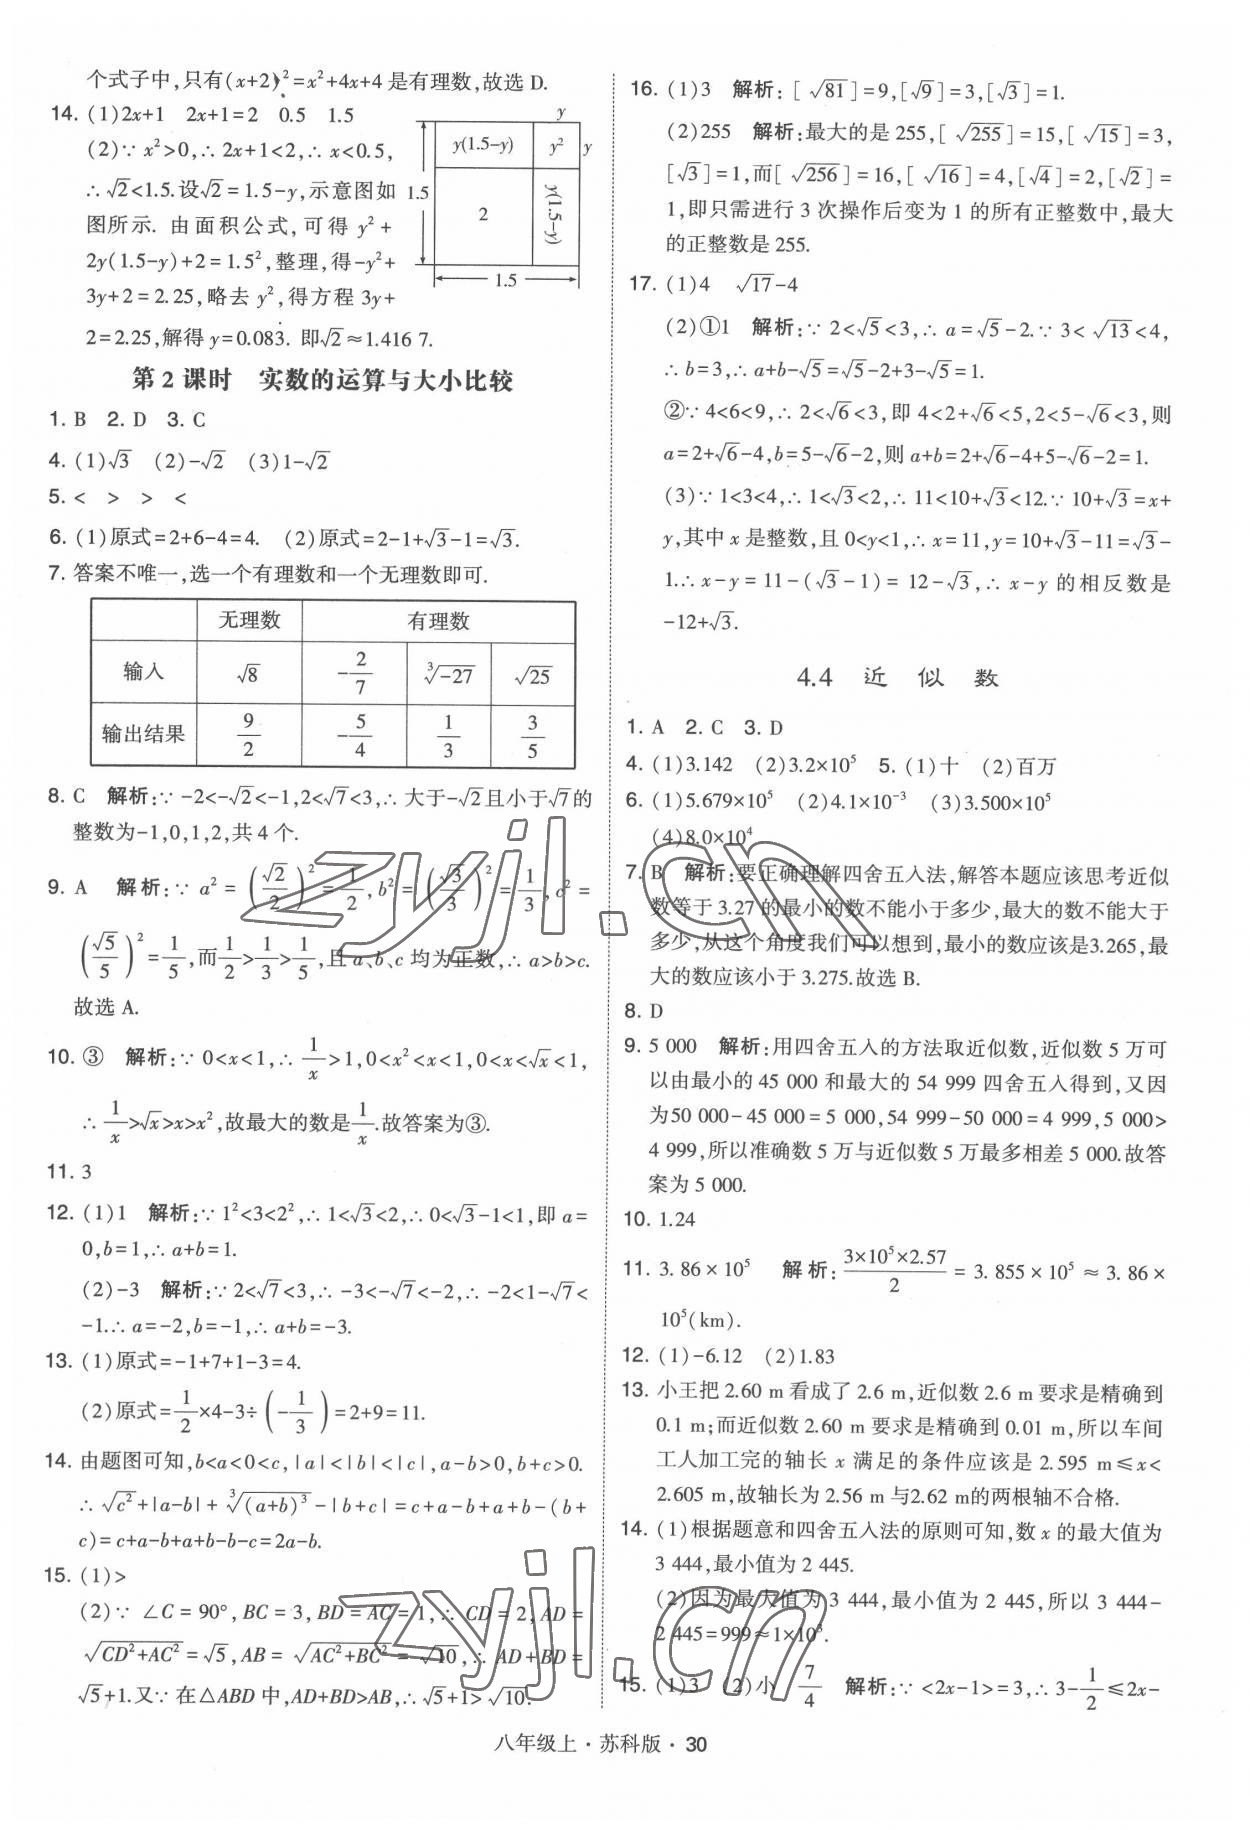 个式子中,只有(x+2)²=x²+4x+4是有理数,故选D.
14. (1)2x+1 2x+1=2 0.5 1.5
(2)∵ x²>0,∴ 2x+1<2,∴ x<0.5,
∴ √2<1.5.设√2=1.5-y,示意图如
图所示. 由面积公式,可得 y²+
2y(1.5-y)+2=1.5²,整理,得-y²+
3y+2=2.25,略去 y²,得方程 3y+
2=2.25,解得 y=0.083̇. 即√2≈1.416 7.
y
y(1.5-y) y² y
1.5 2 y(1.5-y)
1.5
第 2 课时 实数的运算与大小比较
1. B 2. D 3. C
4. (1)√3 (2)-√2 (3)1-√2
5. < > > <
6. (1)原式=2+6-4=4. (2)原式=2-1+√3-1=√3.
7. 答案不唯一,选一个有理数和一个无理数即可.
无理数 有理数
输入 √8 -2/7 ³√-27 √25
输出结果 9/2 -5/4 1/3 3/5
8. C 解析:∵ -2<-√2<-1,2<√7<3,∴ 大于-√2且小于√7的
整数为-1,0,1,2,共 4 个.
9. A 解析:∵ a²=(√2/2)²=1/2,b²=(√3/3)²=1/3,c²=
(√5/5)²=1/5,而1/2>1/3>1/5,且 a、b、c 均为正数,∴ a>b>c.
故选 A.
10. ③ 解析:∵ 0<x<1,∴ 1/x>1,0<x²<x<1,0<x<√x<1,
∴ 1/x>√x>x>x²,故最大的数是1/x.故答案为③.
11. 3
12. (1)1 解析:∵ 1²<3<2²,∴ 1<√3<2,∴ 0<√3-1<1,即 a=
0,b=1,∴ a+b=1.
(2)-3 解析:∵ 2<√7<3,∴ -3<-√7<-2,∴ -2<1-√7<
-1.∴ a=-2,b=-1,∴ a+b=-3.
13. (1)原式=-1+7+1-3=4.
(2)原式=1/2×4-3÷(-1/3)=2+9=11.
14. 由题图可知,b<a<0<c,|a|<|b|<|c|,a-b>0,b+c>0.
∴ √c²+|a-b|+³√(a+b)³-|b+c|=c+a-b+a+b-(b+
c)=c+a-b+a+b-b-c=2a-b.
15. (1)>
(2)∵ ∠C=90°,BC=3,BD=AC=1,∴ CD=2,AD=
√CD²+AC²=√5,AB=√AC²+BC²=√10,∴ AD+BD=
√5+1.又∵ 在△ABD 中,AD+BD>AB,∴ √5+1>√10.
16. (1)3 解析:[√81]=9,[√9]=3,[√3]=1.
(2)255 解析:最大的是 255,[√255]=15,[√15]=3,
[√3]=1,而[√256]=16,[√16]=4,[√4]=2,[√2]=
1,即只需进行 3 次操作后变为 1 的所有正整数中,最大
的正整数是 255.
17. (1)4 √17-4
(2)①1 解析:∵ 2<√5<3,∴ a=√5-2.∵ 3<√13<4,
∴ b=3,∴ a+b-√5=√5-2+3-√5=1.
②∵ 4<6<9,∴ 2<√6<3,即 4<2+√6<5,2<5-√6<3,则
a=2+√6-4,b=5-√6-2,则 a+b=2+√6-4+5-√6-2=1.
(3)∵ 1<3<4,∴ 1<√3<2,∴ 11<10+√3<12.∵ 10+√3=x+
y,其中 x 是整数,且 0<y<1,∴ x=11,y=10+√3-11=√3-
1.∴ x-y=11-(√3-1)=12-√3,∴ x-y 的相反数是
-12+√3.
4.4 近 似 数
1. A 2. C 3. D
4. (1)3.142 (2)3.2×10⁵ 5. (1)十 (2)百万
6. (1)5.679×10⁵ (2)4.1×10⁻³ (3)3.500×10⁵
(4)8.0×10⁴
7. B 解析:要正确理解四舍五入法,解答本题应该思考近似
数等于 3.27 的最小的数不能小于多少,最大的数不能大于
多少,从这个角度我们可以想到,最小的数应该是3.265,最
大的数应该小于 3.275.故选 B.
8. D
9. 5 000 解析:用四舍五入的方法取近似数,近似数 5 万可
以由最小的 45 000 和最大的 54 999 四舍五入得到,又因
为50 000-45 000=5 000,54 999-50 000=4 999,5 000>
4 999,所以准确数 5 万与近似数 5 万最多相差 5 000.故答
案为 5 000.
10. 1.24
11. 3.86×10⁵ 解析:3×10⁵×2.57/2=3.855×10⁵≈3.86×
10⁵(km).
12. (1)-6.12 (2)1.83
13. 小王把 2.60 m 看成了 2.6 m,近似数 2.6 m 要求是精确到
0.1 m;而近似数 2.60 m 要求是精确到 0.01 m,所以车间
工人加工完的轴长 x 满足的条件应该是 2.595 m≤x<
2.605 m,故轴长为 2.56 m 与2.62 m的两根轴不合格.
14. (1)根据题意和四舍五入法的原则可知,数 x 的最大值为
3 444,最小值为 2 445.
(2)因为最大值为 3 444,最小值为 2 445,所以 3 444-
2 445=999≈1×10³.
15. (1)3 (2)小 7/4 解析:∵ <2x-1>=3,∴ 3-1/2≤2x-
zyjl.cn
zyjl.cn
八年级上·苏科版·30